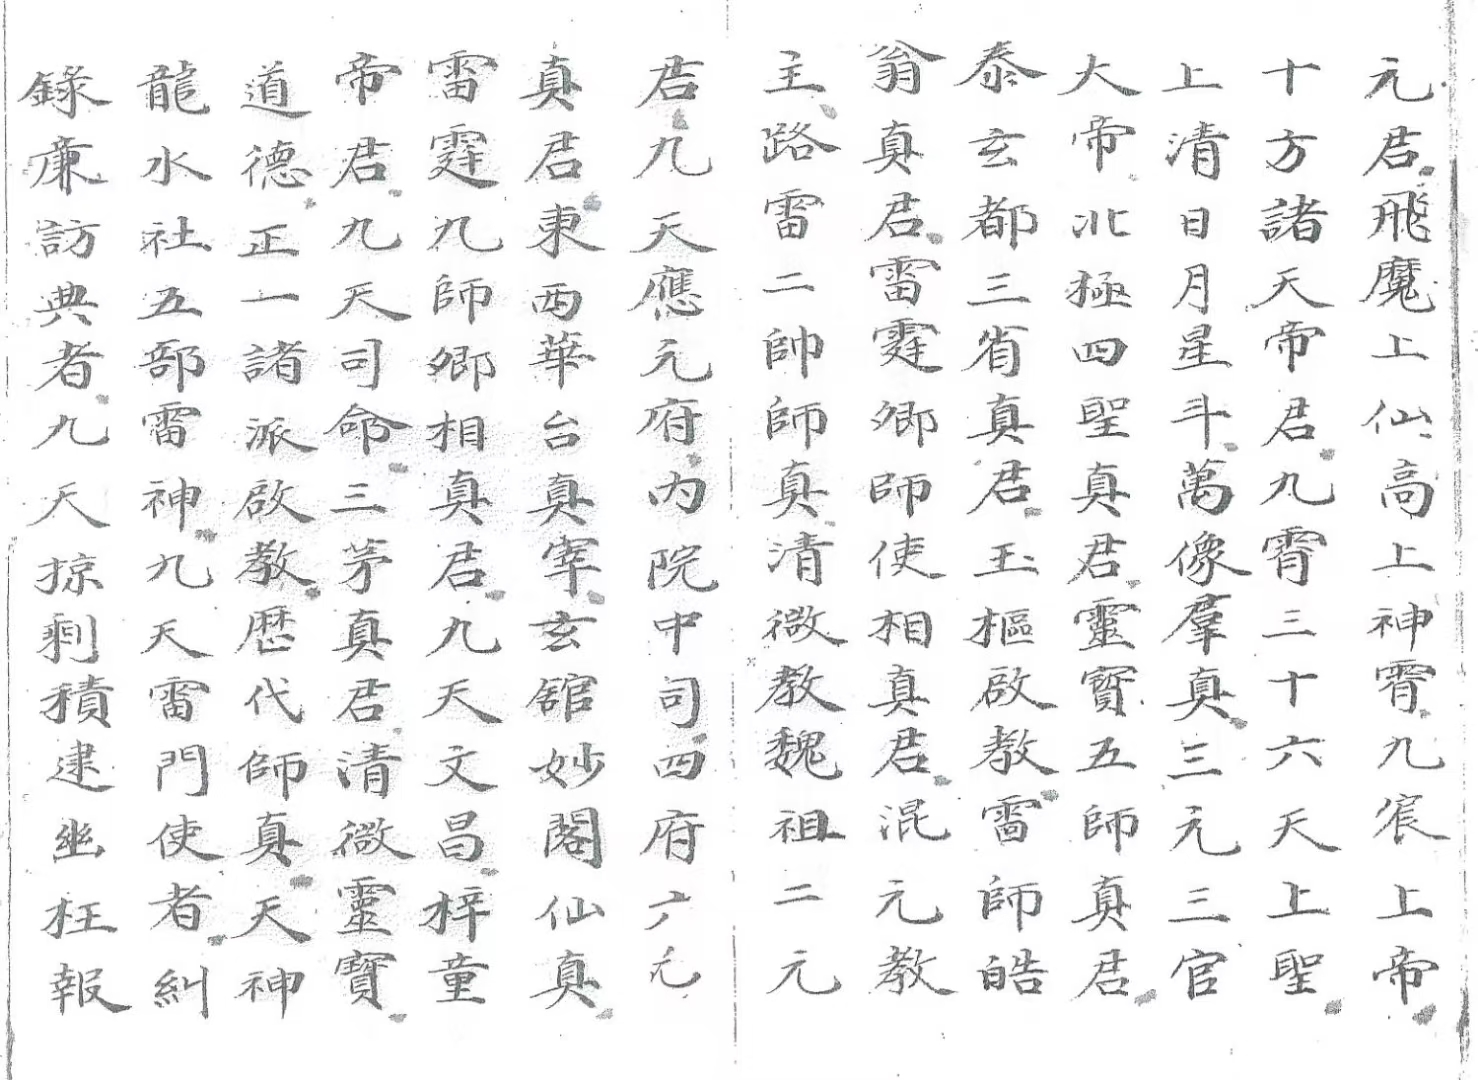 元君飛魔上仙高上神霄九宸上帝
十方諸天帝君九霄三十六天上聖
上清日月星斗萬像羣真三元三官
大帝北極四聖真君靈寶五師真君
泰玄都三省真君玉樞啟教雷師皓
翁真君雷霆卿師使相真君混元教
主路雷二帥師真清微教魏祖二元
君九天應元府內院中司四府六尤
真君東西華台真宰玄舘妙閣仙真
雷霆九師卿相真君九天文昌梓童
帝君九天司命三茅真君清微靈寶
道德正一諸派啟教歷代師真天神
龍水社五部雷神九天雷門使者糾
錄廉訪典者九天掠剩積逮幽枉報